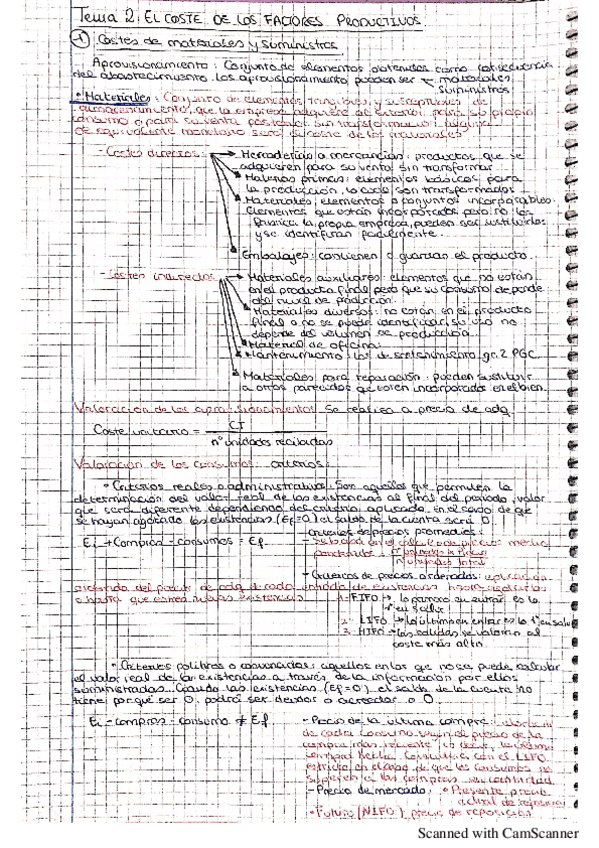 Tema 2. EL COSTE DE LOS FACTORES PRODUCTIVOS.
1 Costes de materiales y suministros
Aprovisionamiento: Conjunto de elementos obtenidos como consecuencia
del abastecimiento. Los aprovisionamiento pueden ser materiales
suministros
• Materiales: Conjunto de elementos tangibles y susceptibles de
almacenamiento, que la empresa adquiere al exterior para su propio
consumo o para su venta posterior sin transformación
de equivalente monetario será el coste de los materiales.
- Costes directos:
Mercaderias o mercancias: productos que se
adquieren para su venta sin transformar
Materias primas: elementos básicos para
la producción, la cual son transformados
Materiales, elementos o conjuntos incorporables
Elementos que están incorporados pero no los
fabrica la propia empresa, pueden ser sustituidos
y se identifican facilmente.
Embalajes: contienen o guardan el producto.
- Costes indirectos
Materiales auxiliares: elementos que no están
en el producto final pero que su consumo depende
del nivel de producción.
Materiales diversos: no están en el producto
final o no se puede identificar, su uso no
depende del volumen de producción.
Material de oficina.
Mantenimiento: gr. 2 PGC.
Materiales para reparación: pueden sustituir
a otros parecidos que esten incorporados en el bien.
Valoración de los aprovisionamientos: Se realiza a precio de adq.
Coste unitario = CT
nº unidades recibidas
Valoración de los consumos: criterios:
• Criterios reales o administrativos: Son aquellos que permiten la
determinación del valor real de las existencias al final del periodo, valor
que será diferente dependiendo del criterio aplicado. En el caso de que
se hayan agotado las existencias (Ef=0) el saldo de la cuenta será 0.
Ei + Compras - consumos = Ef
- Criterios de precios promedios:
- Criterios de precios ordenados:
1. FIFO → la primera en entrar es la
1ª en salir
2. LIFO → la última en entrar es la 1ª en salir
3. HIFO → las salidas se valoran al
coste más alto.
• Criterios políticos o convenidos: aquellos en los que no se puede calcular
el valor real de las existencias a través de la información por ellos
suministradas. Cuando las existencias (Ef=0) el saldo de la cuenta no
tiene por qué ser 0, podrá ser deudor o acreedor o 0.
Ei - compras - consumo ≠ Ef
- Precio de la última compra:
de cada consumo según el precio de la
compra más reciente
- Precio de mercado: • Presente: precio
actual de reposición
• Futuro (NIFO): precio de reposición
Scanned with CamScanner